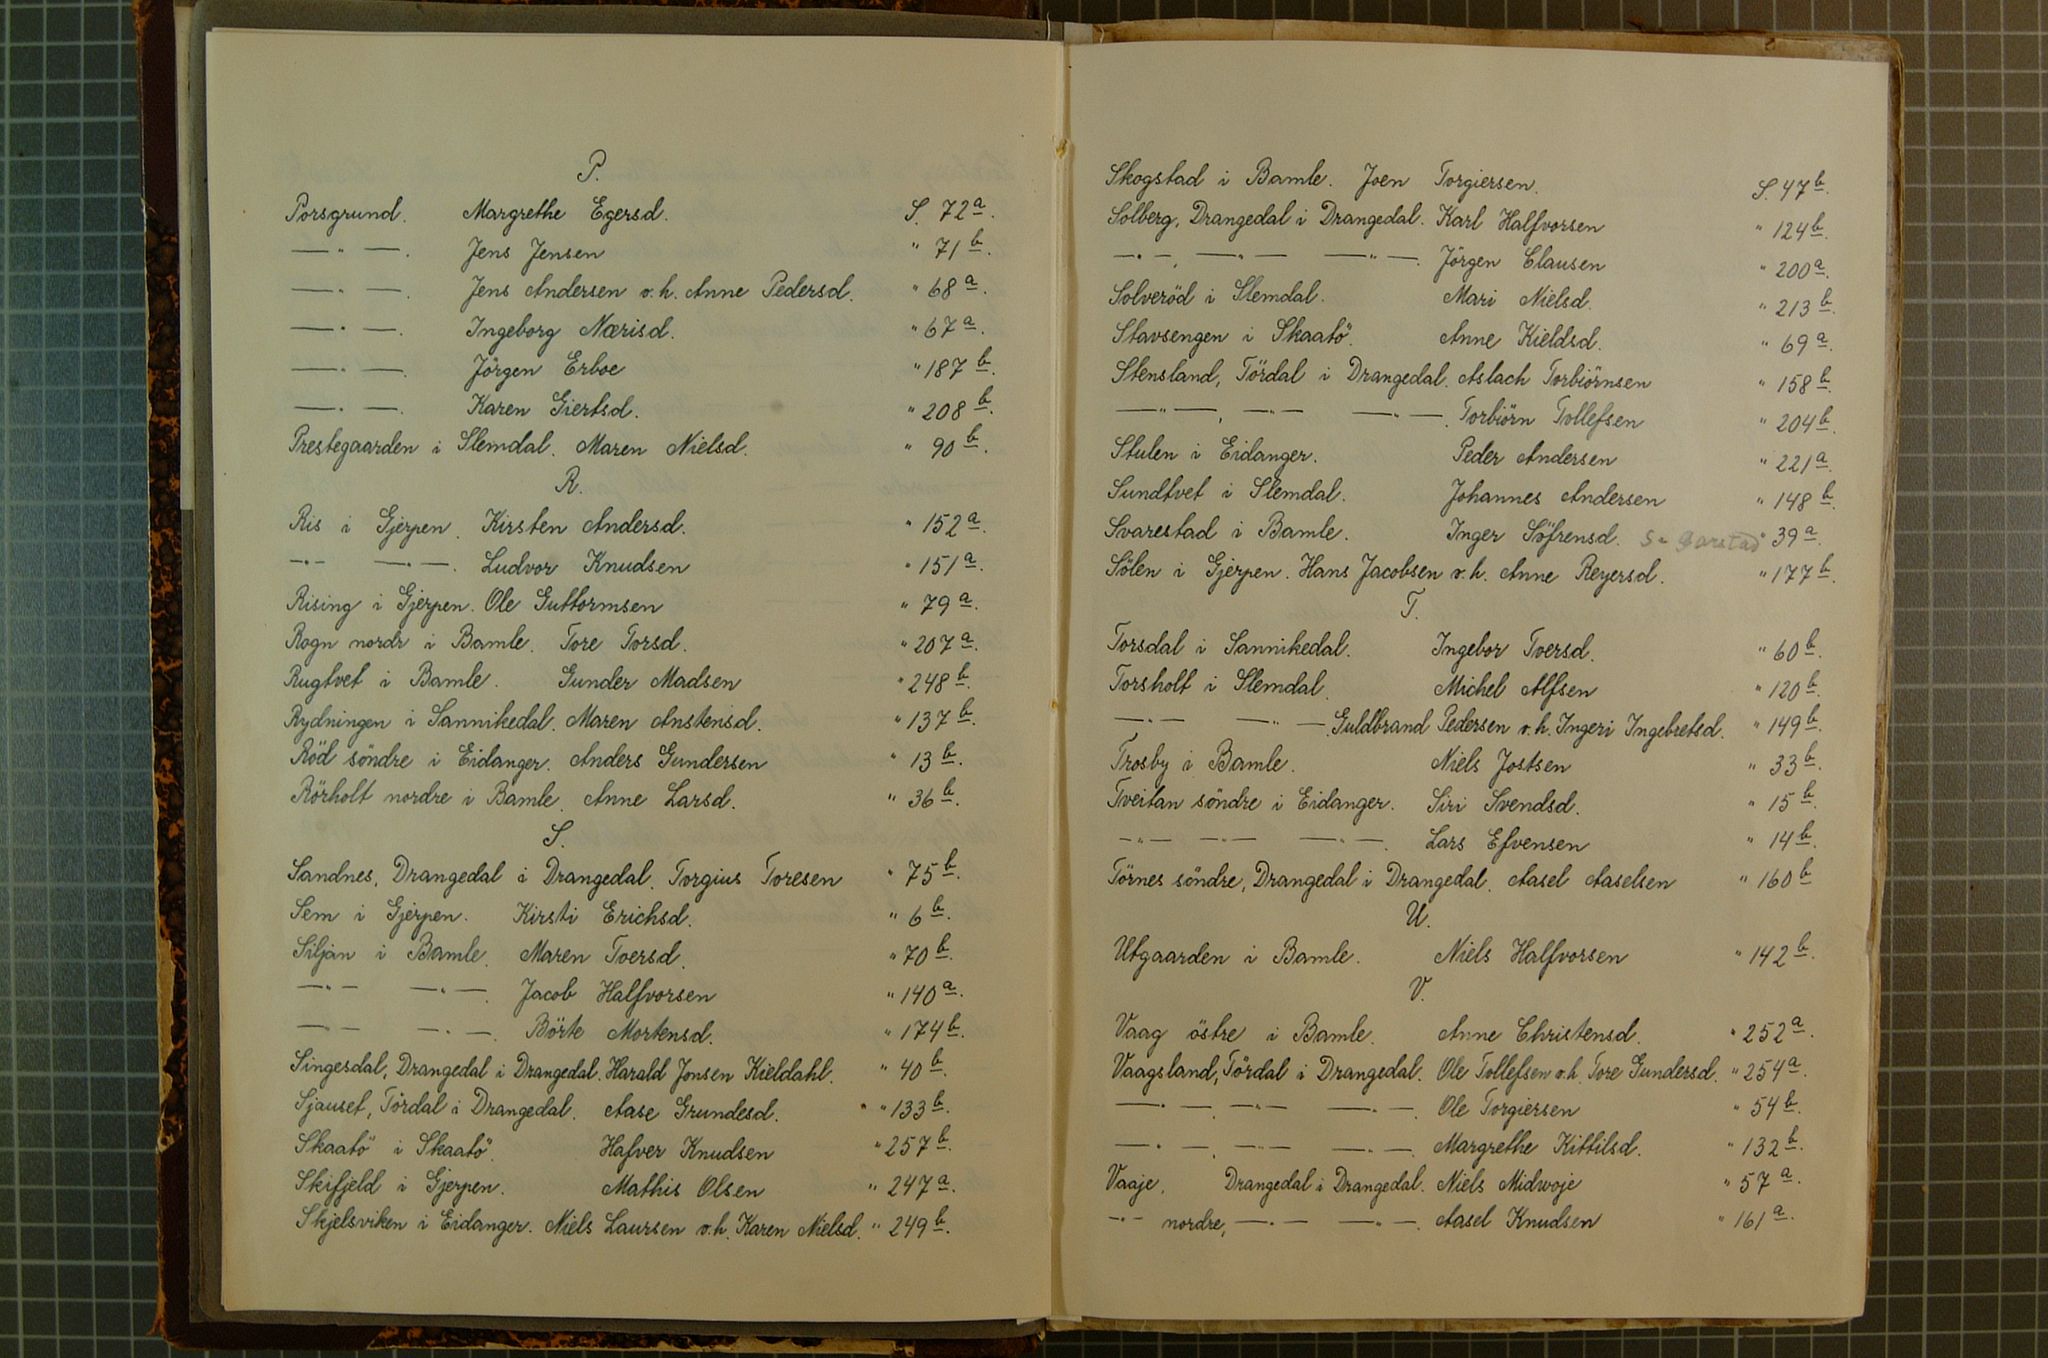 P.
Porsgrund. Margrethe Egersd. S. 72 a.
— " —. Jens Jensen " 71 b.
— " —. Jens Andersen v.h. Anne Pedersd. " 68 a.
— " —. Ingeborg Nærisd. " 67 a.
— " —. Jörgen Erboe " 187 b.
— " —. Karen Giertsd. " 208 b.
Prestegaarden i Slemdal. Maren Nielsd. " 90 b.
R.
Ris i Gjerpen. Kirsten Andersd. " 152 a.
— " — — " —. Ludvor Knudsen " 151 a.
Rising i Gjerpen. Ole Guttormsen " 79 a.
Rogn nordr i Bamle. Tore Torsd. " 207 a.
Rugtvet i Bamle. Gunder Madsen " 248 b.
Rydningen i Sannikedal. Maren Anstensd. " 137 b.
Röd söndre i Eidanger. Anders Gundersen " 13 b.
Rörholt nordre i Bamle. Anne Larsd. " 36 b.
S.
Sandnes, Drangedal i Drangedal. Torgius Toresen " 75 b.
Sem i Gjerpen. Kirsti Erichsd. " 6 b.
Siljan i Bamle. Maren Toersd. " 70 b.
— " — — " —. Jacob Halfvorsen " 140 a.
— " — — " —. Börte Mortensd. " 174 b.
Singesdal, Drangedal i Drangedal. Harald Jonsen Kieldahl. " 40 b.
Sjauset, Tördal i Drangedal. Aase Grundesd. " 133 b.
Skaatö i Skaatö. Hafver Knudsen " 257 b.
Skifjeld i Gjerpen. Mathis Olsen " 247 a.
Skjelsviken i Eidanger. Niels Laursen v.h. Karen Nielsd. " 249 b.
Skogstad i Bamle. Joen Torgiersen. S. 47 b.
Solberg, Drangedal i Drangedal. Karl Halfvorsen " 124 b.
— " —, — " — — " —. Jörgen Clausen " 200 a.
Solveröd i Slemdal. Mari Nielsd. " 213 b.
Stavsengen i Skaatö. Anne Kieldsd. " 69 a.
Stensland, Tördal i Drangedal. Aslach Torbiörnsen " 158 b.
— " —, — " — — " —. Torbiörn Tollefsen " 204 b.
Stulen i Eidanger. Peder Andersen " 221 a.
Sundtvet i Slemdal. Johannes Andersen " 148 b.
Svarestad i Bamle. Inger Söfrensd. " 39 a.
Sölen i Gjerpen. Hans Jacobsen v.h. Anne Reyersd. " 177 b.
T.
Torsdal i Sannikedal. Ingebor Toersd. " 60 b.
Torsholt i Slemdal. Michel Alfsen " 120 b.
— " — — " —. Guldbrand Pedersen v.h. Ingeri Ingebretsd. " 149 b.
Trosby i Bamle. Niels Jostsen " 33 b.
Tveitan söndre i Eidanger. Siri Svendsd. " 15 b.
— " — — " — — " —. Lars Efvensen " 14 b.
Törnes söndre, Drangedal i Drangedal. Aasel Aaselsen " 160 b
U.
Utgaarden i Bamle. Niels Halfvorsen " 142 b.
V.
Vaag östre i Bamle. Anne Christensd. " 252 a.
Vaagsland, Tördal i Drangedal. Ole Tollefsen v.h. Tore Gundersd. " 254 a.
— " —. — " — — " —. Ole Torgiersen " 54 b.
— " —. — " — — " —. Margrethe Kittilsd. " 132 b.
Vaaje, Drangedal i Drangedal. Niels Midwoje " 57 a.
— " — nordre, — " — — " —. Aasel Knudsen " 161 a.